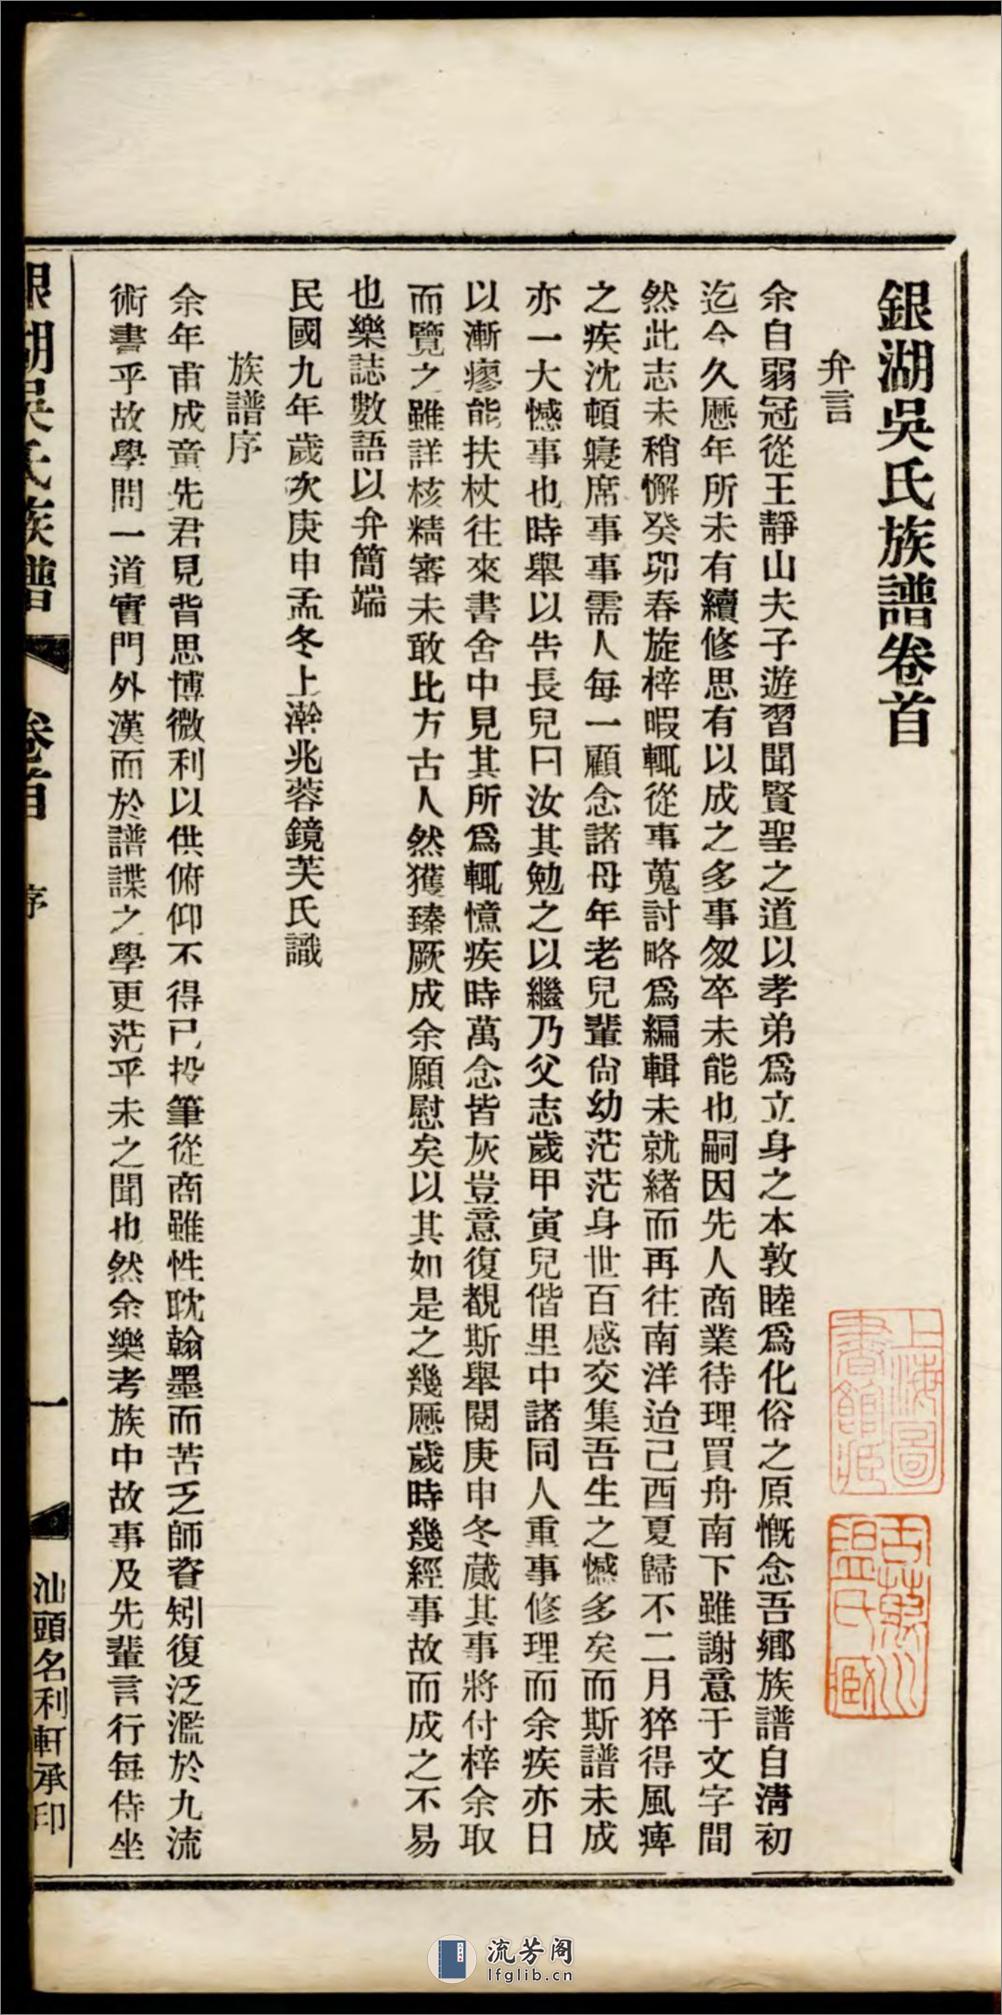 銀湖吳氏族譜卷首
弁言
余自弱冠從王靜山夫子遊習聞賢聖之道以孝弟爲立身之本敦睦爲化俗之原慨念吾鄉族譜自清初
迄今久厯年所未有續修思有以成之多事匆卒未能也嗣因先人商業待理買舟南下雖謝意于文字間
然此志未稍懈癸卯春旋梓暇輒從事蒐討略爲編輯未就緒而再往南洋迨己酉夏歸不二月猝得風痺
之疾沈頓寢席事事需人每一顧念諸母年老兒輩尙幼茫茫身世百感交集吾生之憾多矣而斯譜未成
亦一大憾事也時舉以告長兒曰汝其勉之以繼乃父志歲甲寅兒偕里中諸同人重事修理而余疾亦日
以漸瘳能扶杖往來書舍中見其所爲輒憶疾時萬念皆灰豈意復覩斯舉閱庚申冬蕆其事將付梓余取
而覽之雖詳核精審未敢比方古人然獲臻厥成余願慰矣以其如是之幾厯歲時幾經事故而成之不易
也樂誌數語以弁簡端
民國九年歲次庚申孟冬上澣兆蓉鏡芙氏識
族譜序
余年甫成童先君見背思博微利以供俯仰不得已投筆從商雖性耽翰墨而苦乏師資矧復泛濫於九流
術書乎故學問一道實門外漢而於譜諜之學更茫乎未之聞也然余樂考族中故事及先輩言行每侍坐
銀湖吳氏族譜
卷首
序
一
汕頭名利軒承印
上海圖
書館藏
古萬川
溫氏藏
流芳阁
lfglib.cn